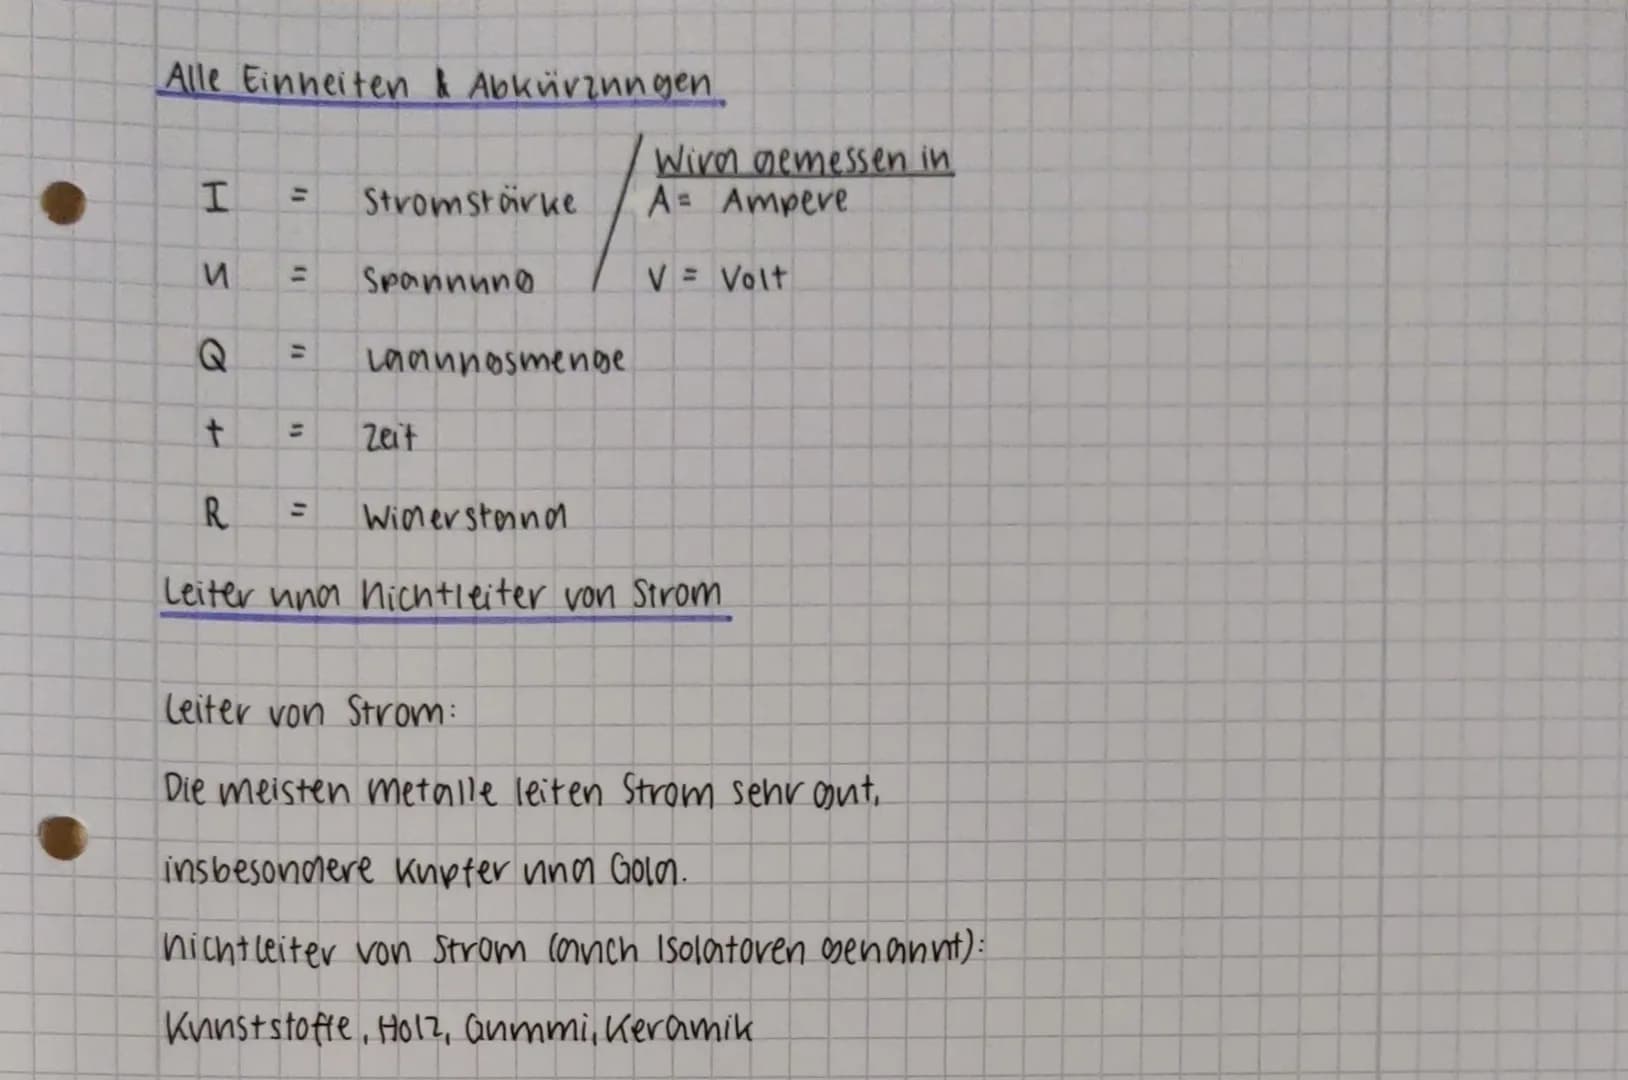 Alle Einheiten & Abkürzungen
Wird gemessen in
I = Stromstärke / A = Ampere
U = Spannung / V = Volt
Q = Ladungsmenge
t = Zeit
R = Widerstand
Leiter und Nichtleiter von Strom
Leiter von Strom:
Die meisten Metalle leiten Strom sehr gut,
insbesondere Kupfer und Gold.
Nichtleiter von Strom (auch Isolatoren genannt):
Kunststoffe, Holz, Gummi, Keramik